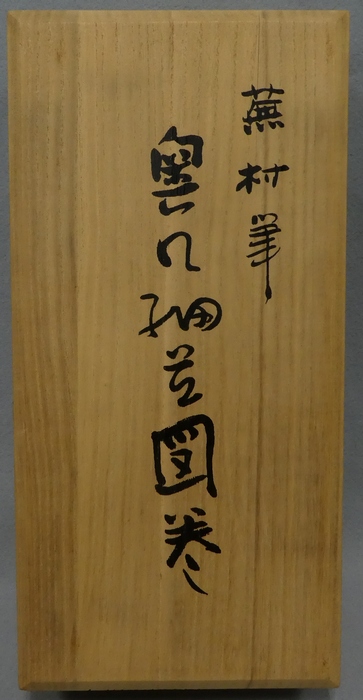 蕪村筆
奥の細道圖巻